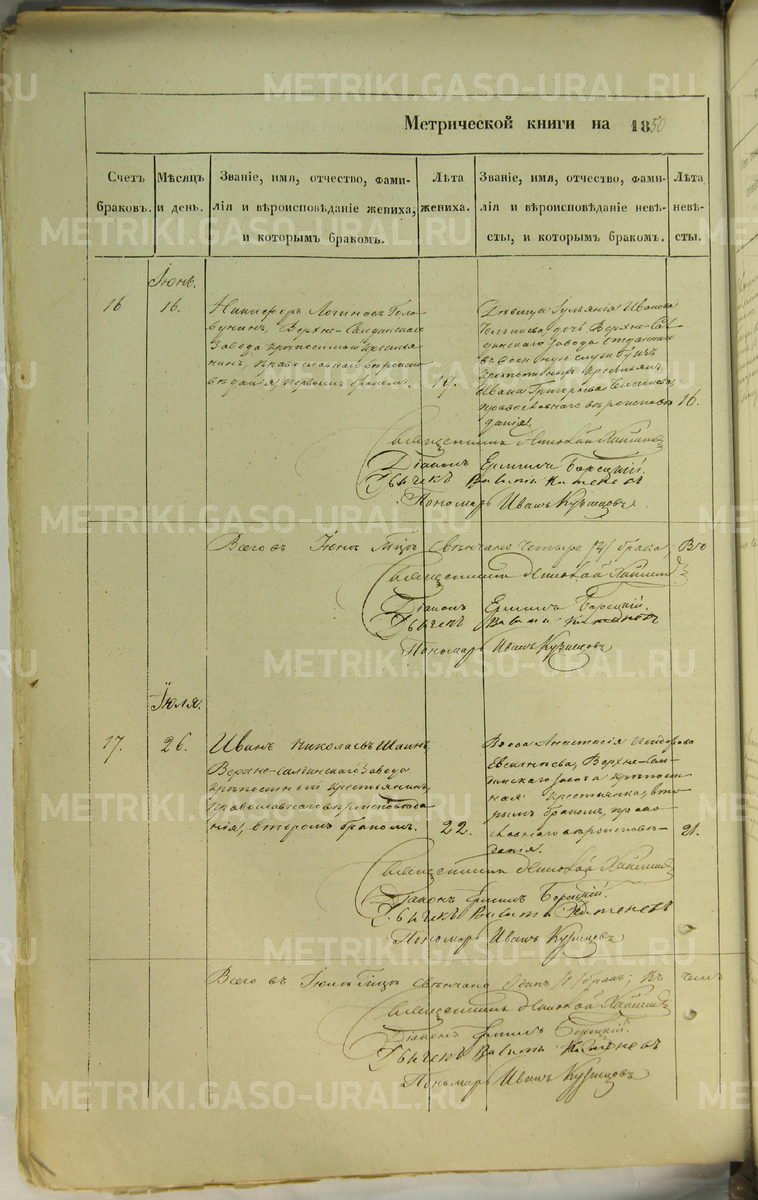 METRIKI.GASO-URAL.RU
Метрической книги на 1850
Счетъ браковъ.
Мѣсяцъ и день.
Званіе, имя, отчество, фами-
лія и вѣроисповѣданіе жениха,
и которымъ бракомъ.
Лѣта жениха.
Званіе, имя, отчество, фами-
лія и вѣроисповѣданіе невѣ-
сты, и которымъ бракомъ.
Лѣта невѣ-
сты.
Іюнь.
16
16.
Никифоръ Логиновъ Голо-
бунинъ, Верхне-Салдинскаго
Завода крѣпостный крестья-
нинъ, православнаго вѣроиспо-
вѣданія, первымъ бракомъ.
19.
Дѣвица Іуліянія Иванова
дочь Верхне-Сал-
динскаго Завода отданнаго
въ военную службу
крестьян.
Ивана Григорьева
православнаго вѣроисповѣ-
данія.
16.
Священникъ
Діаконъ Ермилъ Борецкій.
Дьячекъ
Пономарь Иванъ Кузнецовъ
Всего въ Іюнѣ м҃цѣ свѣнчано четыре /4/ брака, Въ
Священникъ
Діаконъ Ермилъ Борецкій.
Дьячекъ
Пономарь Иванъ Кузнецовъ
Іюля.
17.
26.
Иванъ Николаевъ Шаинъ,
Верхне-Салдинскаго Завода
крѣпостный крестьянинъ,
православнаго вѣроисповѣда-
нія, вторымъ бракомъ.
22.
Вдова Анастасія Исидорова
Верхне-Сал-
динскаго Завода крѣпост-
ная крестьянка, вто-
рымъ бракомъ, право-
славнаго вѣроисповѣ-
данія.
21.
Священникъ
Діаконъ Ермилъ Борецкій.
Дьячекъ
Пономарь Иванъ Кузнецовъ
Всего въ Іюлѣ м҃цѣ свѣнчано одинъ /1/ бракъ; Въ чемъ
Священникъ
Діаконъ Ермилъ Борецкій.
Дьячекъ
Пономарь Иванъ Кузнецовъ